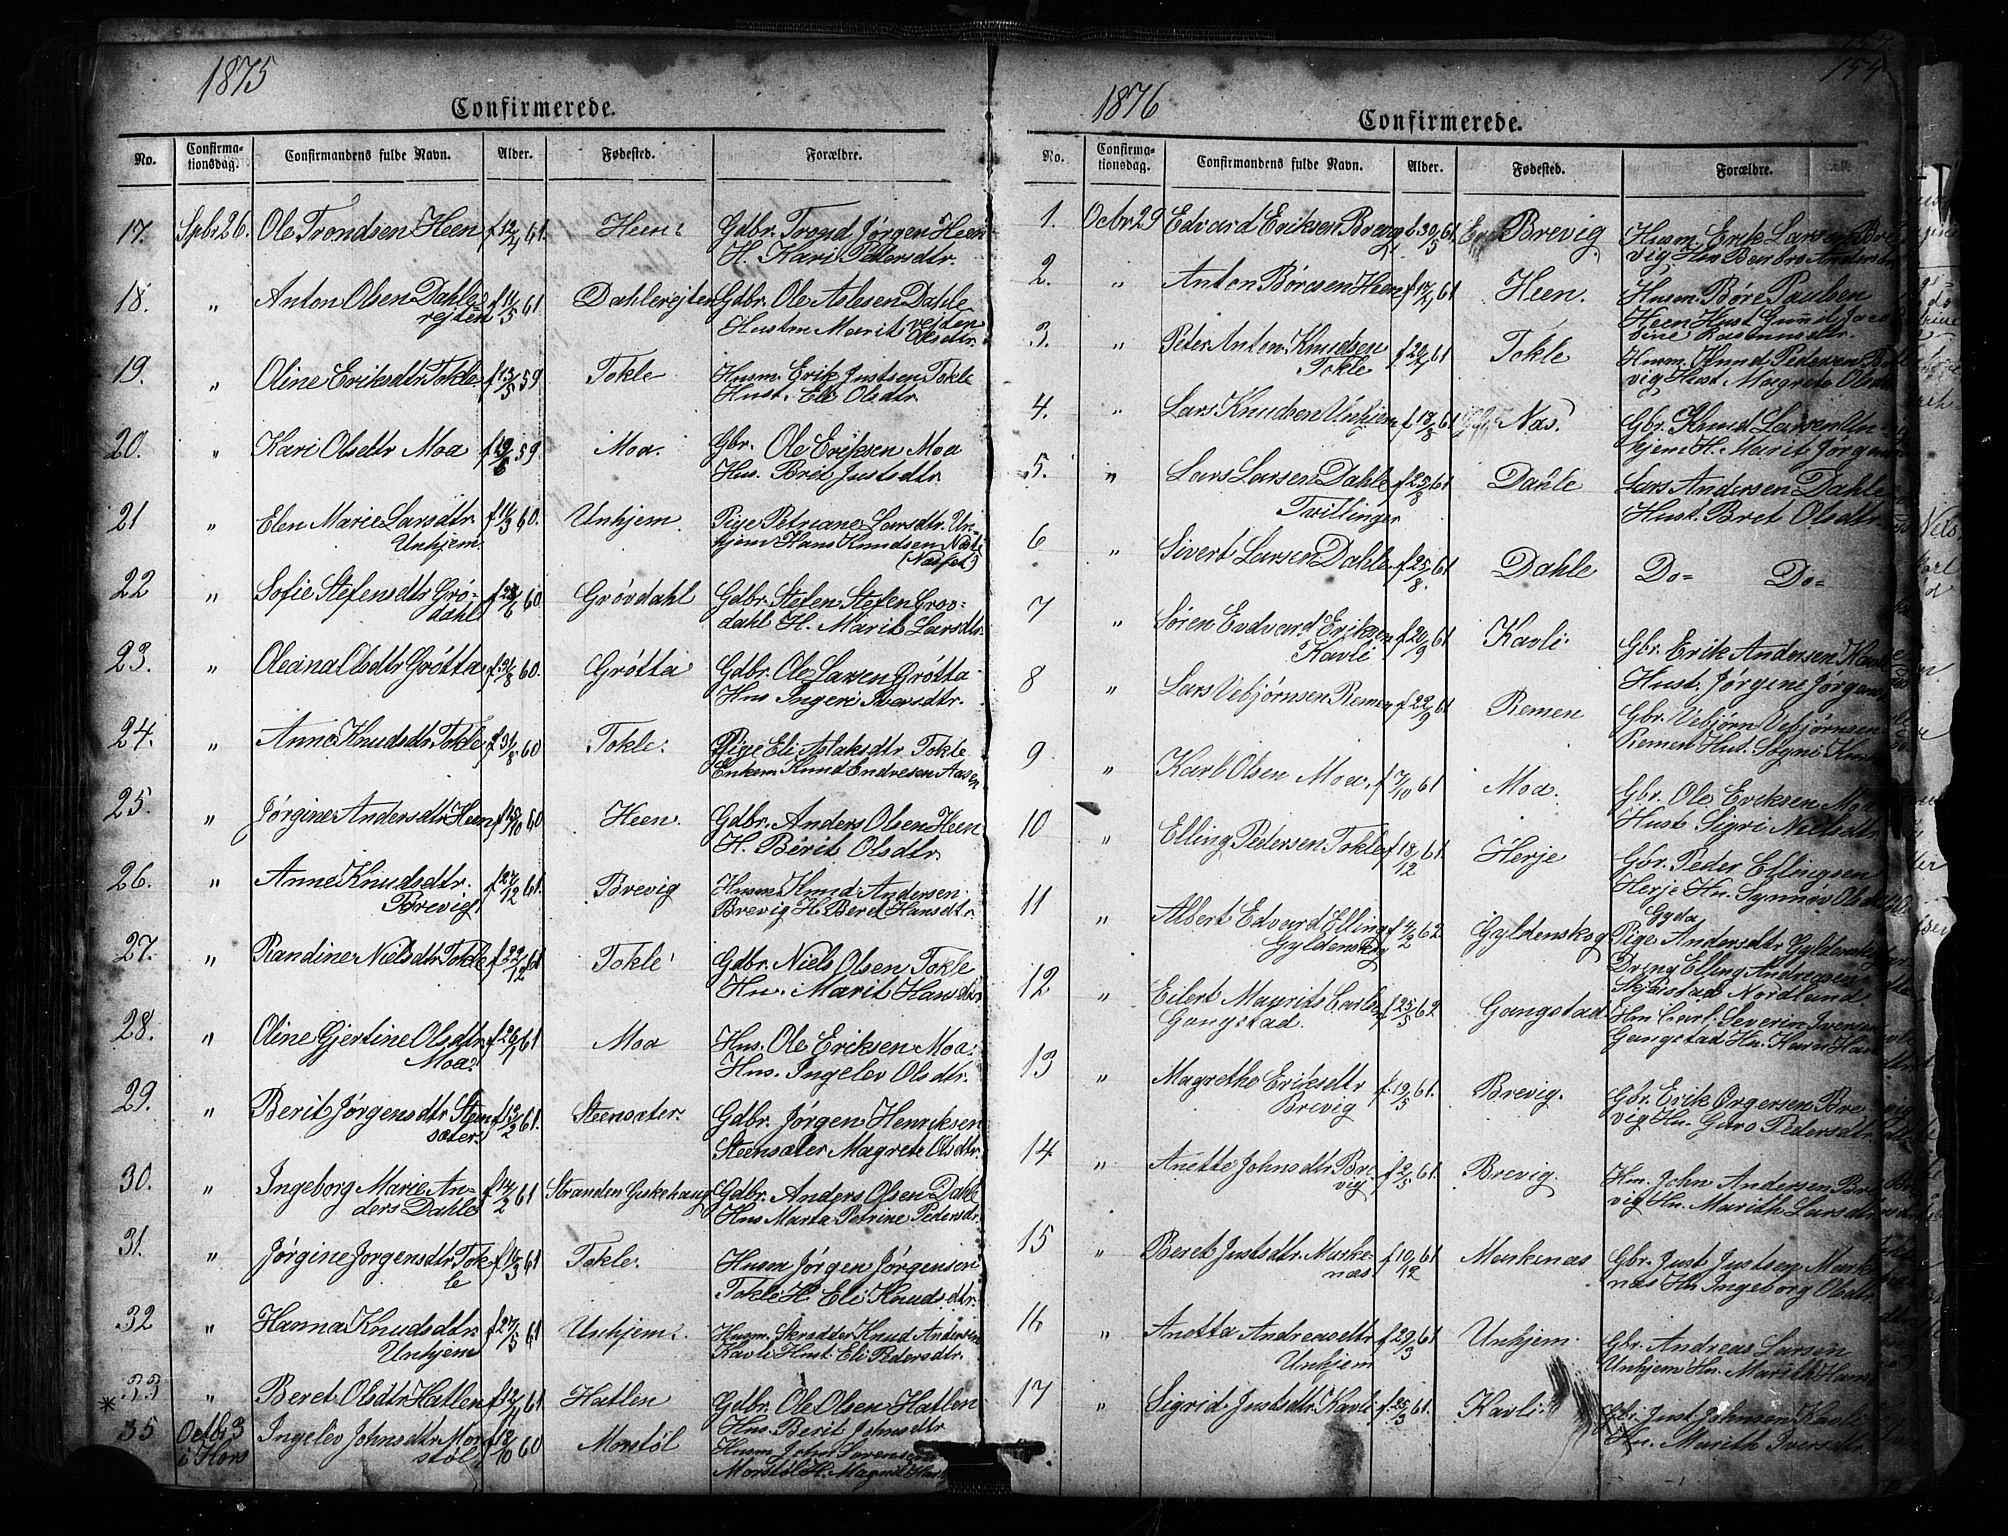 1875
Confirmerede.
No. Confirma-tionsdag. Confirmandens fulde Navn. Alder. Fødested. Forældre.
17. Spbr 26. Ole Trondsen Heen f 12/4 61. Heen. Gdbr. Trond Jørgen Heen
H. Kari Pedersdtr.
18. " Anton Olsen Dahle f 14/5 61 Dahlerejten Gdbr. Ole Dahle
rejten Hustm Marit rejten
Olsdtr.
19. " Oline Eriksdtr Tokle f 13/5 59 Tokle Husm. Erik Justsen Tokle
Hust. Eli Olsdtr.
20. " Kari Olsdtr Moa 59 Moa. Gbr. Ole Eriksen Moa
Hus. Brit Justsdtr
21 " Elen Marie Larsdtr. f 14/3 60. Unhjem. Pige Petriane Larsdtr. Un
Unhjem. hjem Hans Knudsen
22 " Sofie Stefensdtr Grö- f 28/6 60. Grövdahl Gdbr. Stefen Stefen Grov=
dahl dahl H. Marit Larsdtr.
23. " Oleana Olsdtr Gröttа f 31/8 60. Grötta Gdbr. Ole Larsen Grötta
Hus Ingeri Iversdtr.
24. " Anne Knudsdtr Tokle f 31/8 60 Tokle. Pige Eli Aslaksdtr Tokle
Enkem Knud Endresen Aasen
25. " Jørgine Andersdtr Heen 60 Heen. Gdbr. Anders Olsen Heen
H. Berit Olsdtr
26. " Anne Knudsdtr. f 27/12 61. Brevig Knud Andersen
Brevig Brevig H. Beret Hansdtr.
27. " Randine Nielsdtr Tokle f 22/12 61 Tokle Gdbr. Niels Olsen Tokle
Hu. Marit Hansdtr
28. " Oline Gjertine Olsdtr 61 Moa Hus. Ole Eriksen Moa.
Moa. Hus. Ingelev Olsdtr.
29. " Berit Jørgensdtr Steen 61. Steensæter. Gdbr. Jørgen Henriksen
sæter. Steensæter Magrete Olsdtr.
30. " Ingeborg Marie An= f 14/2 61 Stranden Giskehaug Gdbr. Anders Olsen Dahle
ders Dahle Hus Marta Petrine Pedersdtr
31. " Jørgine Jorgensdtr Tok f 16/3 61 Tokle. Husm Jørgen Jørgensen
le Tokle H. Eli Knudsdtr.
32 " Hanna Knudsdtr f 27/5 61 Unhjem. Husm. Skrædder Knud Andersen
Unhjem Kavli Hust. Eli Pedersdtr.
33 " Beret Olsdtr Hatlen 61 Hatlen Gdbr. Ole Olsen Hatlen
Hus Berit Johnsdtr
* 35 Octbr 3 Ingelev Johnsdtr Mor 60 Morstöl Husm John Sorensen
i Hors stöl Morstöl H.
1876
154
Confirmerede.
No. Confirma-tionsdag. Confirmandens fulde Navn. Alder. Fødested. Forældre.
1. Octbr 29 Edvard Eriksen Brevig f 30/5 61. Brevig Husm. Erik Larsen Bre
vig Hu
2. " Anton Børesen Heen 61 Heen. Husm. Børe Paulsen
Heen Hust
3. " Peter Anton Knudsen 61 Tokle Husm. Knud Pedersen
Tokle vig Hust Margrete Olsdtr
4. " Lars Knudsen Unhjem f 18/8 61 Næs. Gbr. Knud Larsen Un-
hjem H. Marit Jørgens
5. " Lars Larsen Dahle f 25/8 61 Dahle Lars Andersen Dahle
Tvillinger Hust. Bret Olsdtr.
6 " Sivert Larsen Dahle f 25/8. 61 Dahle Do= Do=
7 " Søren Edvard Eriksen f 20/9 61 Kavli. Gbr. Erik Andersen Kavli
Kavli Hust. Jørgine Jørgens
8 " Lars Vebjørnsen Remen f 22/9 61 Remen Gbr. Vebjørn Vebjørnsen
Remen Hu.
9 " Karl Olsen Moa. f 7/10 61 Moa. Gbr. Ole Eriksen Moa
Hust Sigri Nielsdtr
10 " Elling Pedersen Tokle f 18/12 61. Herje Gbr. Peder Ellingsen
Herje Hu. Synnøv Olsdtr
11 " Albert Edvard Elling f 4/2 62 Gyldenskog Gyda
Gyldenskog Pige Andersdtr Gyldenskog
Dreng Elling Andreasen
Nordlund
12 " Eilert Magrits Carlsen f 25/5 62 Gangstad Hm Carl Severin Iversen
Gangstad. Gangstad Hu. Karn Han
13 " Magrethe Eriksdtr f. 19/5 61. Brevig. Gbr. Erik Orgersen Bre
Brevig vig Hu. Guro Pedersdtr
14 " Anette Johnsdtr Bre f 2/5 61. Brevig. Hm. John Andersen Bre
vig vig Hu. Marith Larsdtr
15 " Beret Justsdtr Marke- f 10/12 61 Markenæs Gbr. Just Justsen Mark
næs næs Hu Ingeborg Olsdtr
16 " Anotta Andreasdtr f 29/3 61. Unhjem. Gbr. Andreas Larsen
Unhjem Unhjem Hu. Marith Hans
17 " Sigrid Justsdtr Kavli f 25/3 61. Kavli Gbr. Just Johnsen Kavli
Hu. Marith Iversdtr